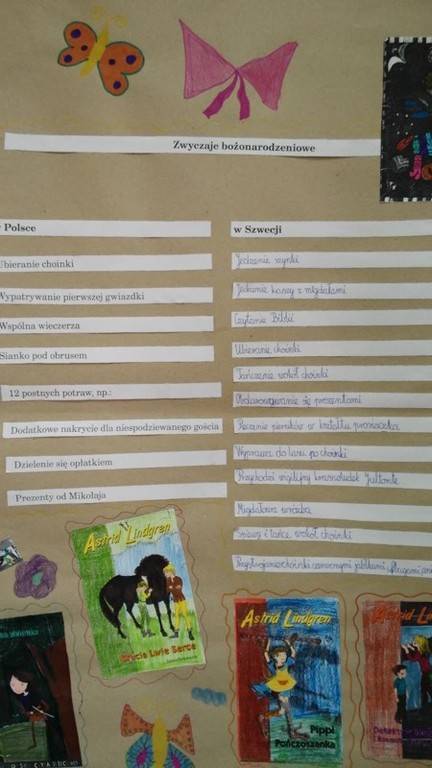 Zwyczaje bożonarodzeniowe
Polsce
Ubieranie choinki
Wypatrywanie pierwszej gwiazdki
Wspólna wieczerza
Sianko pod obrusem
12 postnych potraw, np.:
Dodatkowe nakrycie dla niespodziewanego gościa
Dzielenie się opłatkiem
Prezenty od Mikołaja
w Szwecji
Jedzenie szynki
Jedzenie kaszy z migdałami
Czytanie Biblii
Ubieranie choinki
Tańczenie wokół choinki
Obdarowywanie się prezentami
Pieczenie pierników w kształcie prosiaczka
Wyprawa do lasu po choinkę
Przychodzi wigilijny krasnoludek Jultomte
Migdałowa wróżba
Śpiewy i tańce wokół choinki
Przystrojenie choinki czerwonymi jabłkami
Astrid Lindgren
Bracia Lwie Serce
Astrid Lindgren
Pippi
Pończoszanka
Astrid Lindgren
Detektyw